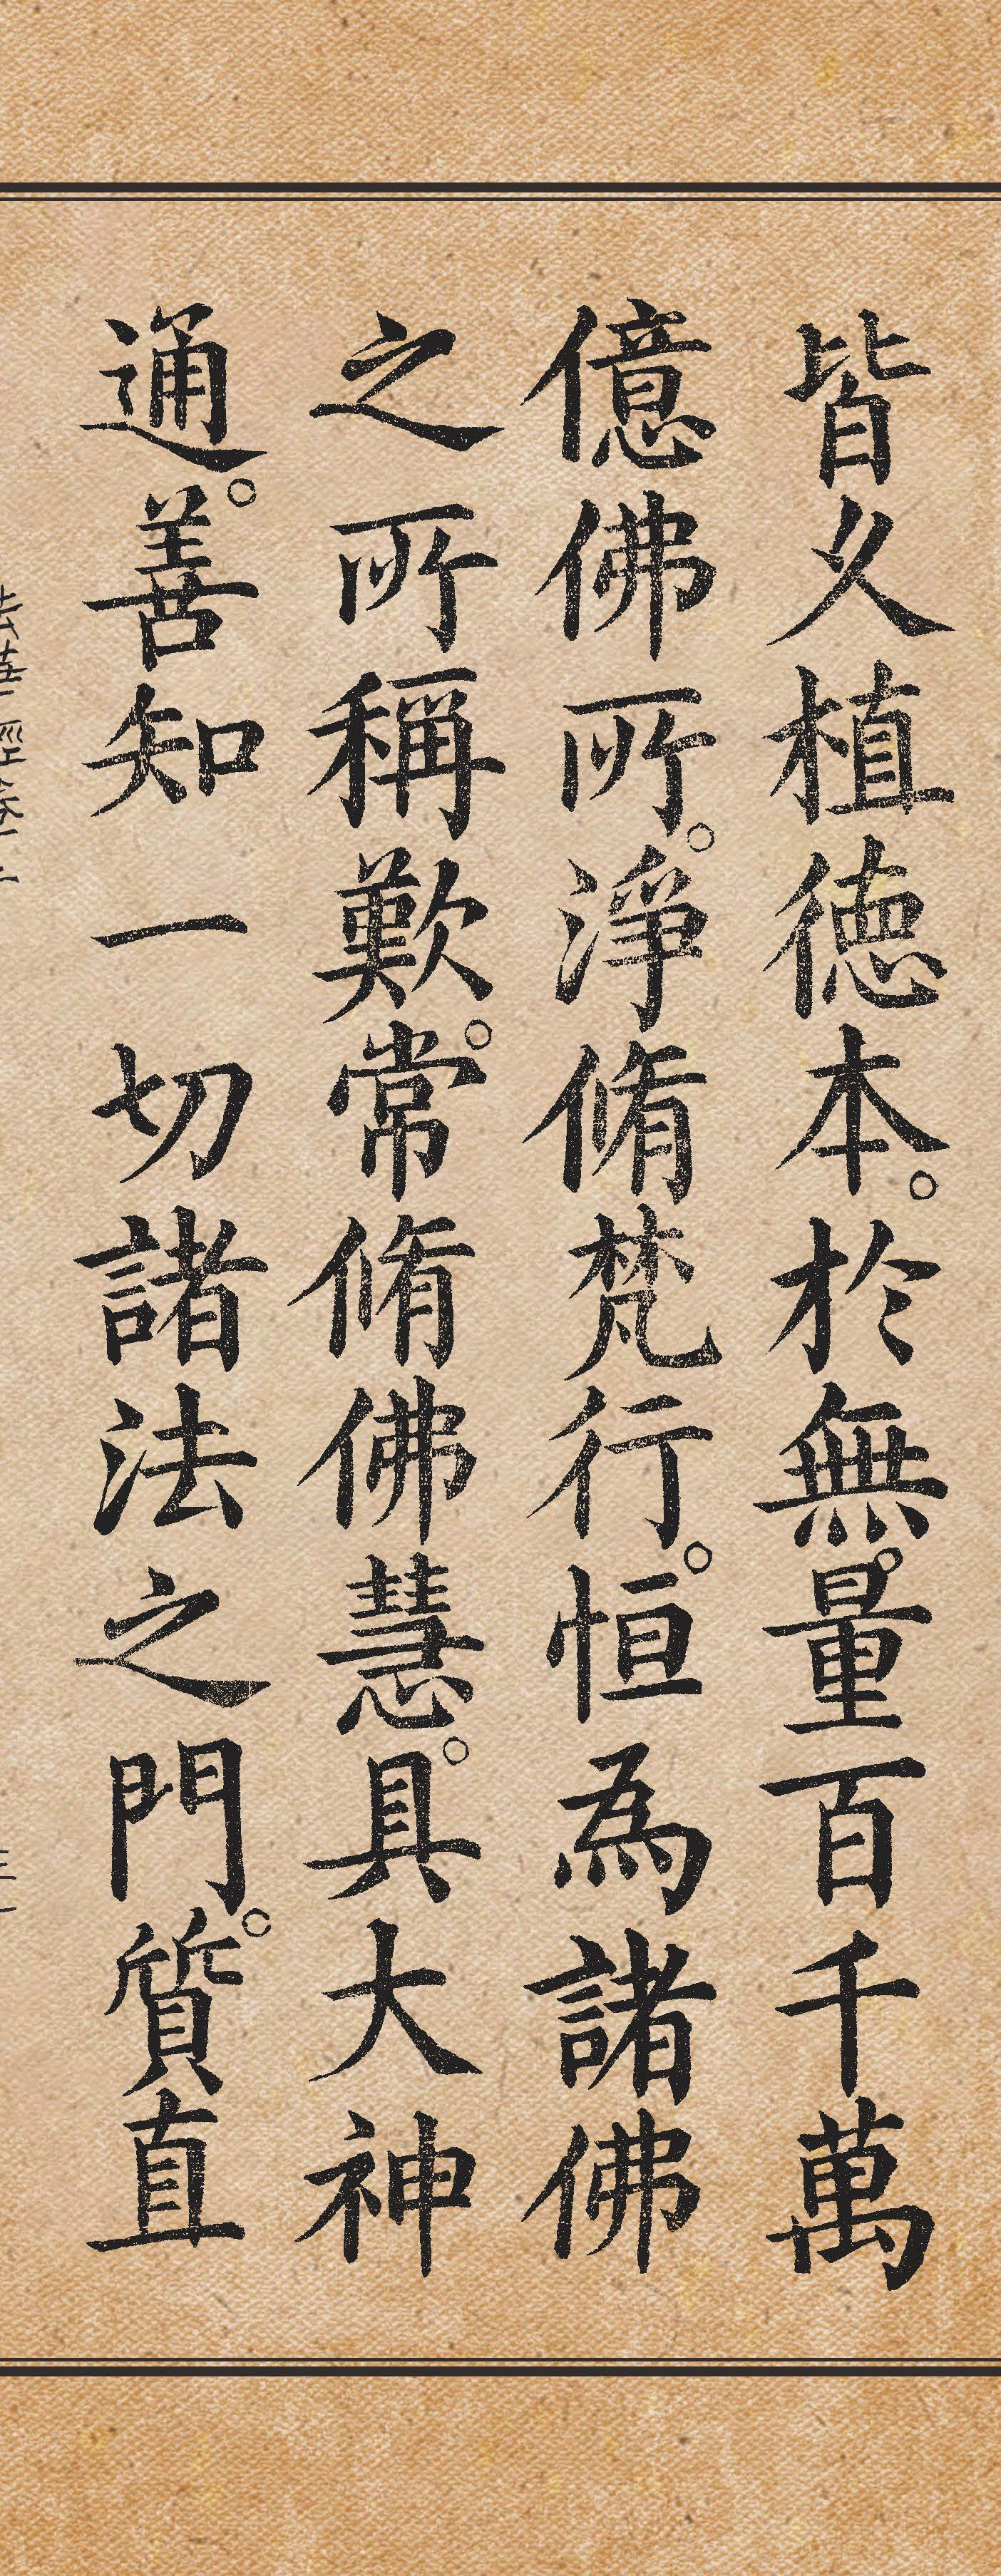 皆久植德本。於無量。百千萬
億佛所。淨脩梵行。恒為諸佛
之所稱歎。常脩佛慧。具大神
通。善知一切諸法之門。質直